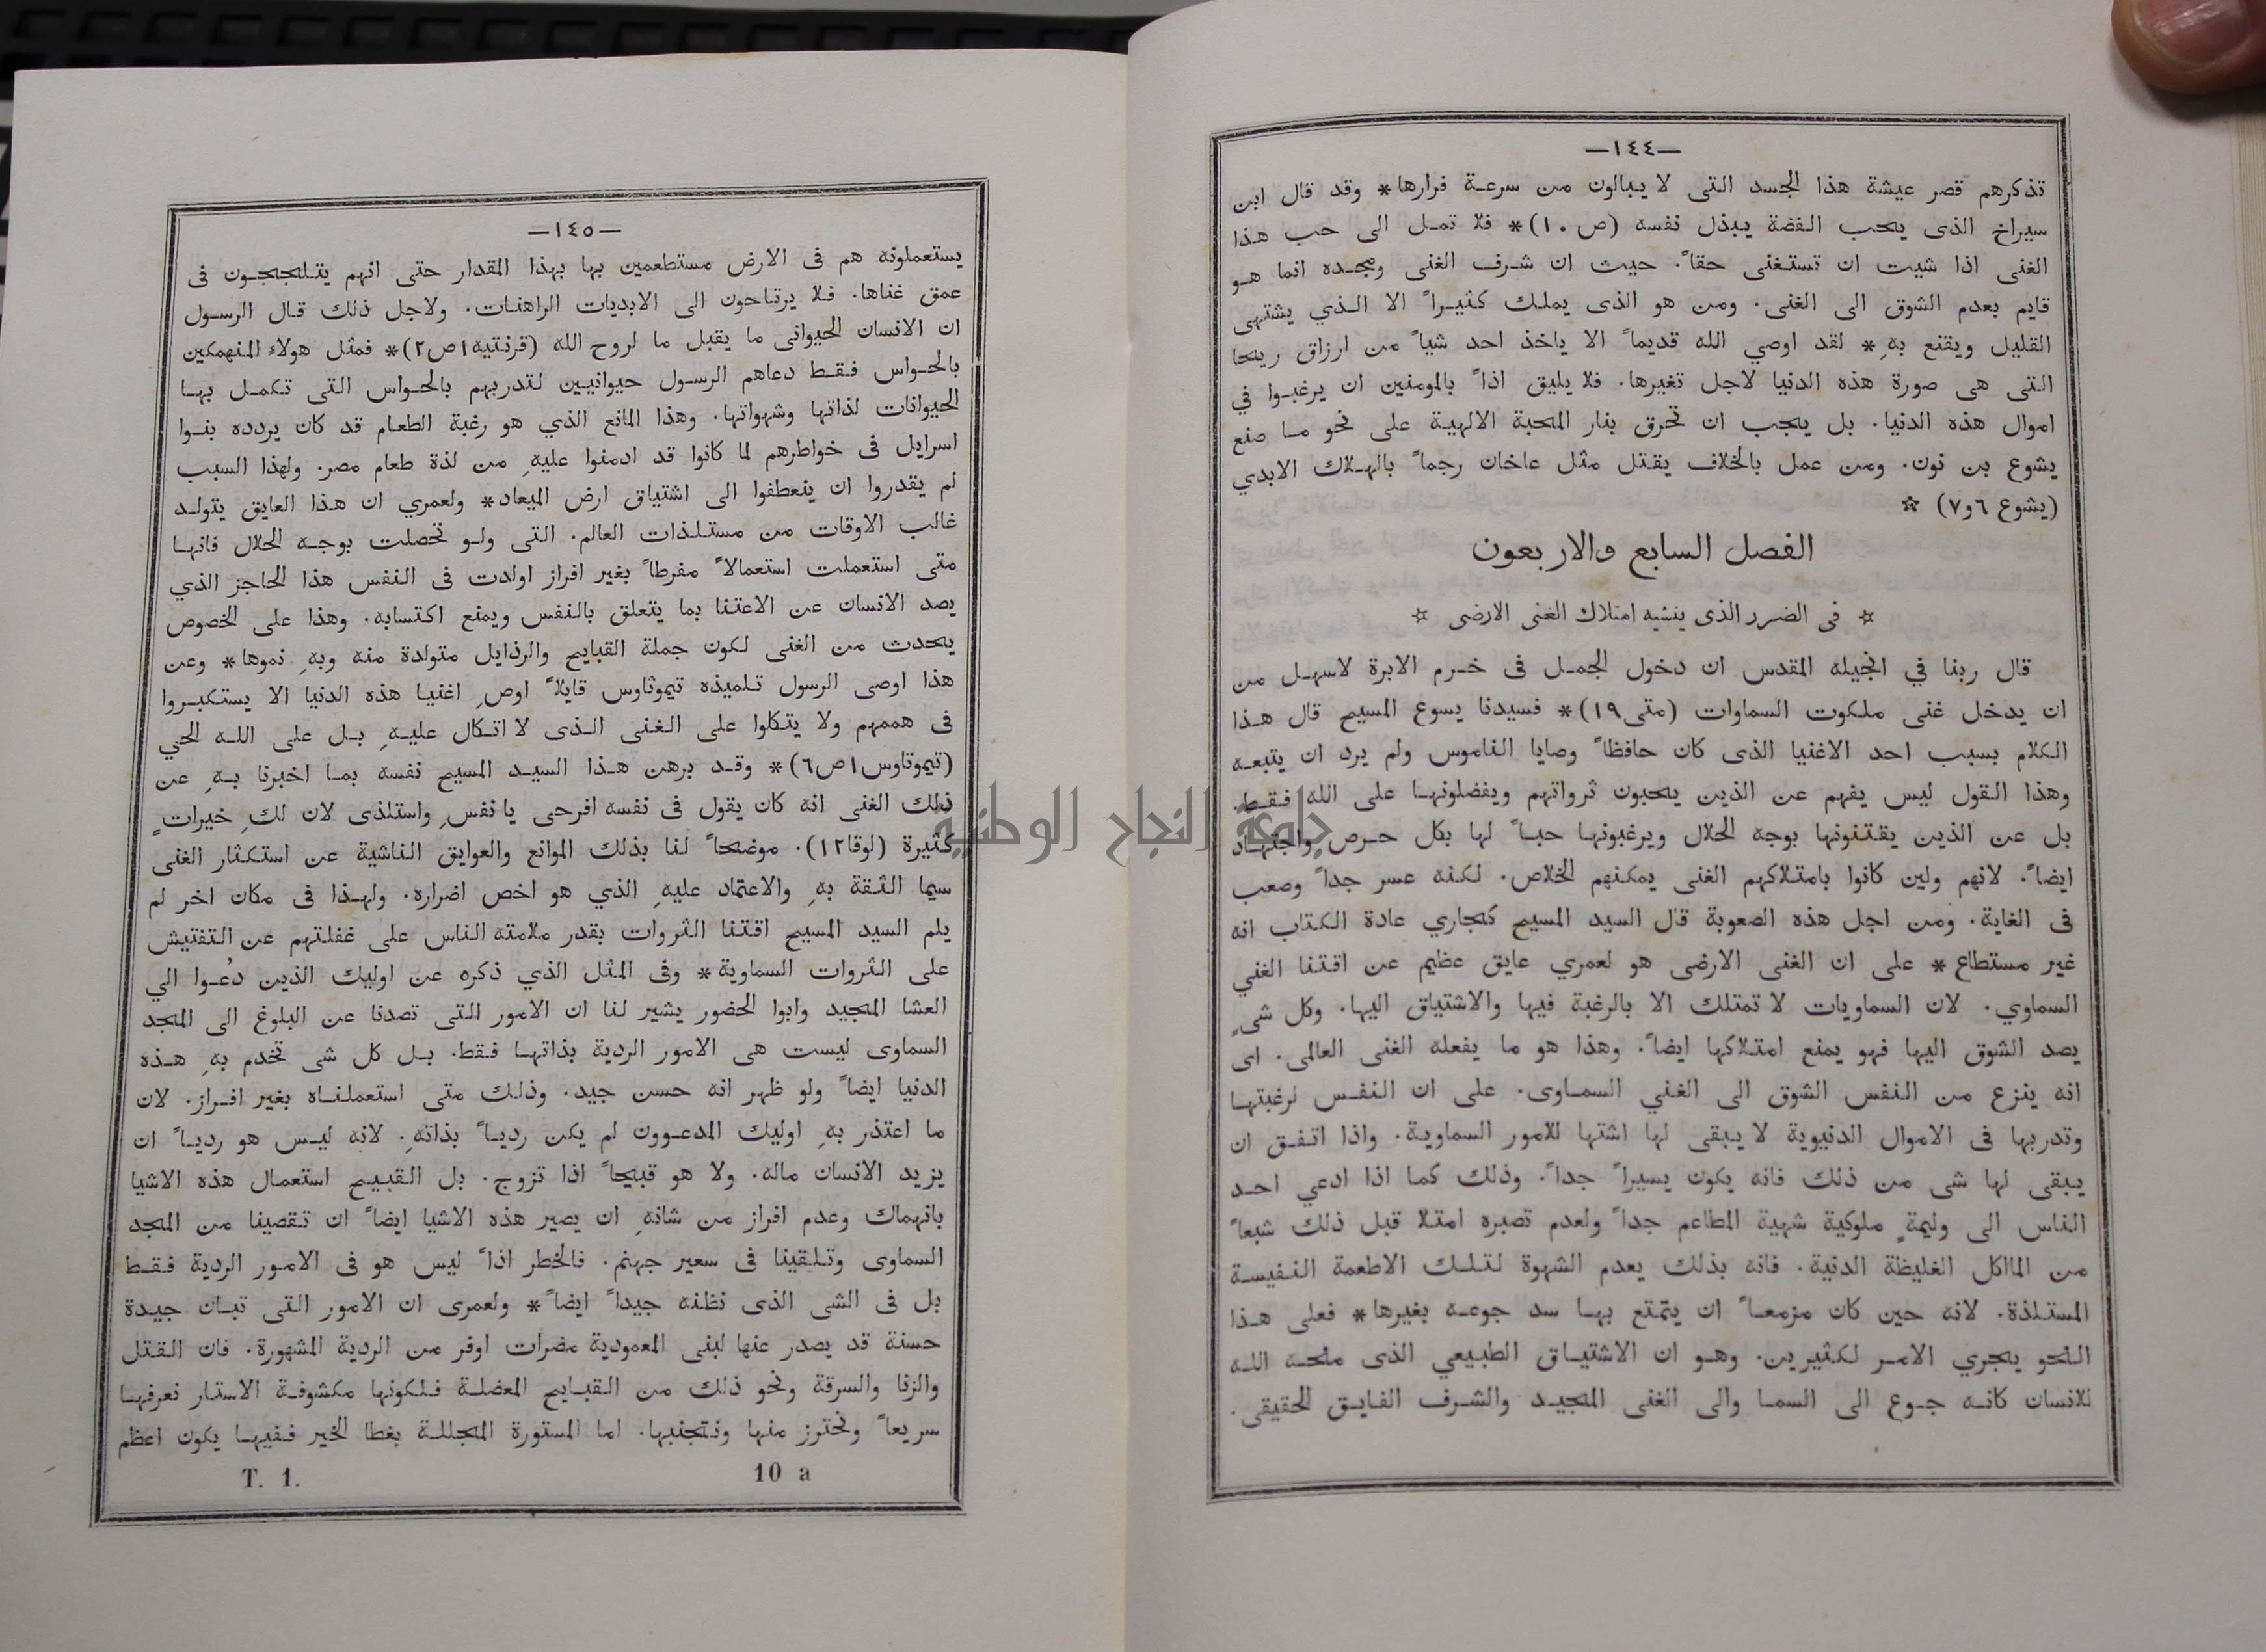 —١٤٤—
تذكرهم قصر عيشة هذا الجسد التى لا يبالون من سرعة فرارها* وقد قال ابن
سيراخ الذى يحب الفضة يبذل نفسه (ص ١٠)* فلا تمل الى حب هذا
الغنى اذا شيت ان تستغنى حقاً. حيث ان شرف الغنى ومجده انما هو
قايم بعدم الشوق الى الغنى. ومن هو الذى يملك كثيراً الا الذي يشتهى
القليل ويقنع بهِ* لقد اوصي الله قديماً الا ياخذ احد شياً من ارزاق ريحا
التى هى صورة هذه الدنيا لاجل تغيرها. فلا يليق اذاً بالمومنين ان يرغبوا في
اموال هذه الدنيا. بل يجب ان تحرق بنار المحبة الالهية على نحو ما صنع
يشوع بن نون. ومن عمل بالخلاف يقتل مثل عاخان رجماً بالهلاك الابدي
(يشوع ٦و٧) ☆
الفصل السابع والاربعون
☆ فى الضرر الذى ينشيه امتلاك الغنى الارضى ☆
قال ربنا في انجيله المقدس ان دخول الجمل فى خرم الابرة لاسهل من
ان يدخل غنى ملكوت السماوات (متى ١٩)* فسيدنا يسوع المسيح قال هذا
الكلام بسبب احد الاغنيا الذى كان حافظاً وصايا الناموس ولم يرد ان يتبعه
وهذا القول ليس يفهم عن الذين يحبون ثرواتهم ويفضلونها على الله فقط.
بل عن الذين يقتنونها بوجه الحلال ويرغبونها حباً لها بكل حرص واجتهاد
ايضاً. لانهم ولين كانوا بامتلاكهم الغنى يمكنهم الخلاص. لكنه عسر جداً وصعب
فى الغاية. ومن اجل هذه الصعوبة قال السيد المسيح كمجاري عادة الكتاب انه
غير مستطاع* على ان الغنى الارضى هو لعمري عايق عظيم عن اقتنا الغني
السماوي. لان السماويات لا تمتلك الا بالرغبة فيها والاشتياق اليها. وكل شىٍ
يصد الشوق اليها فهو يمنع امتلاكها ايضاً. وهذا هو ما يفعله الغنى العالمى. اى
انه ينزع من النفس الشوق الى الغني السماوى. على ان النفس لرغبتها
وتدربها فى الاموال الدنيوية لا يبقى لها اشتها للامور السماوية. واذا اتفق ان
يبقى لها شى من ذلك فانه يكون يسيراً جداً. وذلك كما اذا ادعي احد
الناس الى وليمةٍ ملوكية شهية المطاعم جداً ولعدم تصبره امتلا قبل ذلك شبعاً
من المااكل الغليظة الدنية. فانه بذلك يعدم الشهوة لتلك الاطعمة النفيسة
المستلذة. لانه حين كان مزمعاً ان يتمتع بها سد جوعه بغيرها* فعلى هذا
النحو يجري الامر لكثيرين. وهو ان الاشتياق الطبيعي الذى منحه الله
للانسان كانه جوع الى السما والى الغنى المجيد والشرف الفايق الحقيقى.
—١٤٥—
يستعملونه هم فى الارض مستطعمين بها بهذا المقدار حتى انهم يتلججون فى
عمق غناها. فلا يرتاحون الى الابديات الراهنات. ولاجل ذلك قال الرسول
ان الانسان الحيوانى ما يقبل ما لروح الله (قرنتيه ١ص٢)* فمثل هولاء المنهمكين
بالحواس فقط دعاهم الرسول حيوانيين لتدربهم بالحواس التى تكمل بها
الحيوانات لذاتها وشهواتها. وهذا المانع الذي هو رغبة الطعام قد كان يردده بنوا
اسرايل فى خواطرهم لما كانوا قد ادمنوا عليهِ من لذة طعام مصر. ولهذا السبب
لم يقدروا ان ينعطفوا الى اشتياق ارض الميعاد* ولعمري ان هذا العايق يتولد
غالب الاوقات من مستلذات العالم. التى ولو تحصلت بوجه الحلال فانها
متى استعملت استعمالاً مفرطاً بغير افراز اولدت فى النفس هذا الحاجز الذي
يصد الانسان عن الاعتنا بما يتعلق بالنفس ويمنع اكتسابه. وهذا على الخصوص
يحدث من الغنى لكون جملة القبايح والرذايل متولدة منه وبهِ نموها* وعن
هذا اوصى الرسول تلميذه تيموثاوس قايلاً اوصِ اغنيا هذه الدنيا الا يستكبروا
فى هممهم ولا يتكلوا على الغنى الذى لا اتكال عليهِ بل على الله الحي
(تيموتاوس ١ص٦)* وقد برهن هذا السيد المسيح نفسه بما اخبرنا بهِ عن
ذلك الغنى انه كان يقول فى نفسه افرحى يا نفسِ واستلذى لان لكِ خيراتٍ
كثيرة (لوقا١٢). موضحاً لنا بذلك الموانع والعوايق الناشية عن استكثار الغنى
سيما الثقة بهِ والاعتماد عليهِ الذي هو اخص اضراره. ولهذا فى مكان اخر لم
يلم السيد المسيح اقتنا الثروات بقدر ملامته الناس على غفلتهم عن التفتيش
على الثروات السماوية* وفى المثل الذي ذكره عن اوليك الذين دُعوا الي
العشا المجيد وابوا الحضور يشير لنا ان الامور التى تصدنا عن البلوغ الى المجد
السماوى ليست هى الامور الردية بذاتها فقط. بل كل شى تخدم بهِ هذه
الدنيا ايضاً ولو ظهر انه حسن جيد. وذلك متى استعملناه بغير افراز. لان
ما اعتذر بهِ اوليك المدعوون لم يكن ردياً بذاتهِ. لانه ليس هو ردياً ان
يزيد الانسان ماله. ولا هو قبيحاً اذا تزوج. بل القبيح استعمال هذه الاشيا
بانهماك وعدم افراز من شانهِ ان يصير هذه الاشيا ايضاً ان تقصينا من المجد
السماوى وتلقينا فى سعير جهنم. فالخطر اذاً ليس هو فى الامور الردية فقط
بل فى الشى الذى نظنه جيداً ايضاً* ولعمرى ان الامور التى تبان جيدة
حسنة قد يصدر عنها لبنى المعمودية مضرات اوفر من الردية المشهورة. فان القتل
والزنا والسرقة ونحو ذلك من القبايح المعضلة فلكونها مكشوفة الاستار نعرفها
سريعاً ونحترز منها ونتجنبها. اما المستورة المجللة بغطا الخير ففيها يكون اعظم
T. 1. 10 a
جامعة النجاح الوطنية